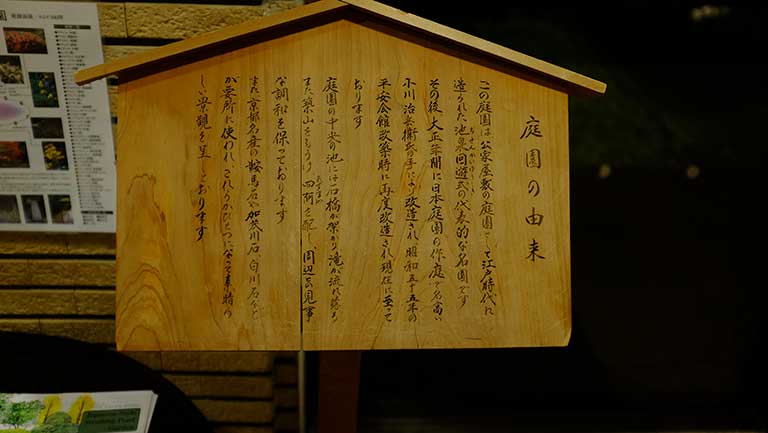 庭園の由来
この庭園は公家屋敷の庭園として江戸時代に
造られた池泉回遊式の代表的な名園です
その後 大正年間に日本庭園の作庭で名高い
小川治兵衛氏の手により改造され 昭和五十五年の
平安会館改築時に再度改造され現在に至って
おります
庭園の中央の池には石橋が架かり滝が流れ落ち
また築山をもうけ 四阿を配し、周辺と見事
な調和を保っております
また京都名産の鞍馬石や加茂川石、白川石など
が要所に使われ、これらがひとつになって素晴ら
しい景観を呈しております